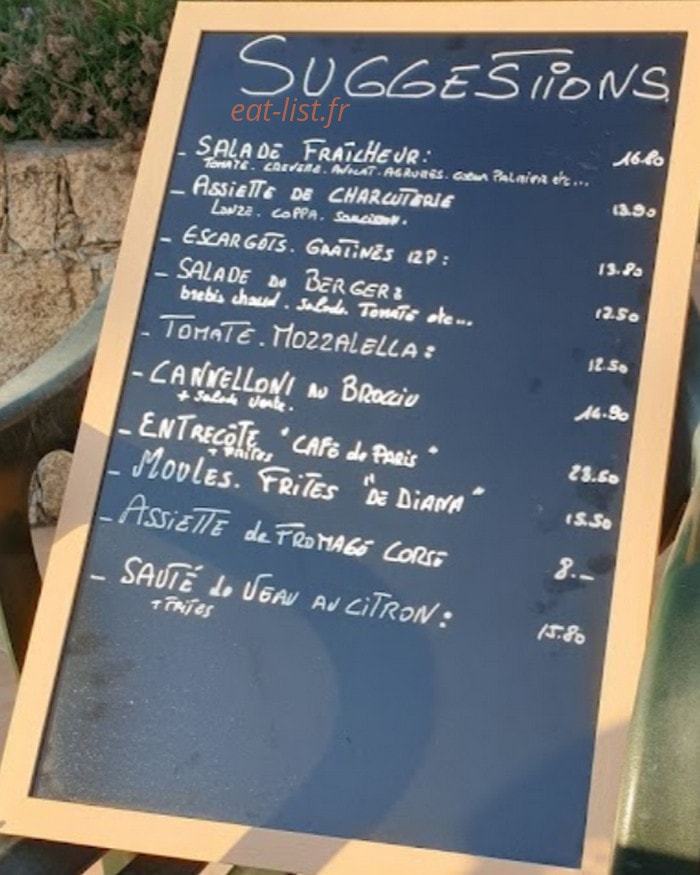 SUGGESTIONS
eat-list.fr
- SALADE FRAÎCHEUR: 16.80
TOMATE. CREVETTE. AVOCAT. AGRUMES. Coeur Palmier etc...
- ASSIETTE DE CHARCUTERIE 13.90
LONZE. COPPA. SAUCISSON.
- ESCARGOTS. GRATINÉS 12P: 13.80
- SALADE DU BERGER: 12.50
brebis chaud. Salade. Tomate etc...
- TOMATE. MOZZALELLA: 12.50
- CANNELLONI AU BROCCIU 14.90
+ Salade Verte.
- ENTRECÔTE "CAFÉ de PARIS" 23.60
+ FRITES
- MOULES. FRITES "DE DIANA" 15.50
- ASSIETTE de FROMAGE CORSE 8.-
- SAUTÉ de VEAU AU CITRON: 15.80
+ FRITES